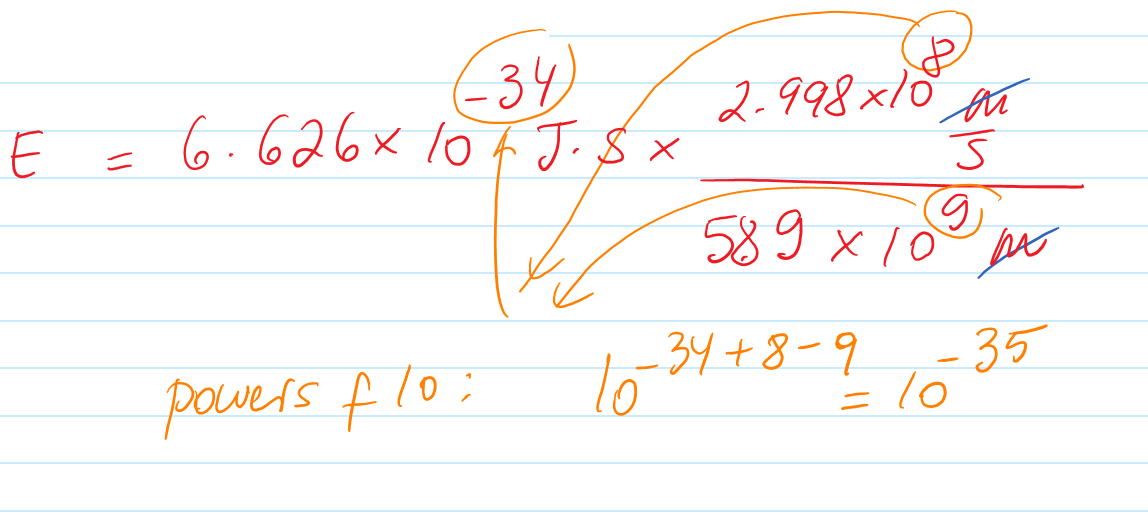 E = 6.626 × 10^-34 J·s × (2.998 × 10^8 m/s) / (589 × 10^9 m)
powers f 10 : 10^-34+8-9 = 10^-35